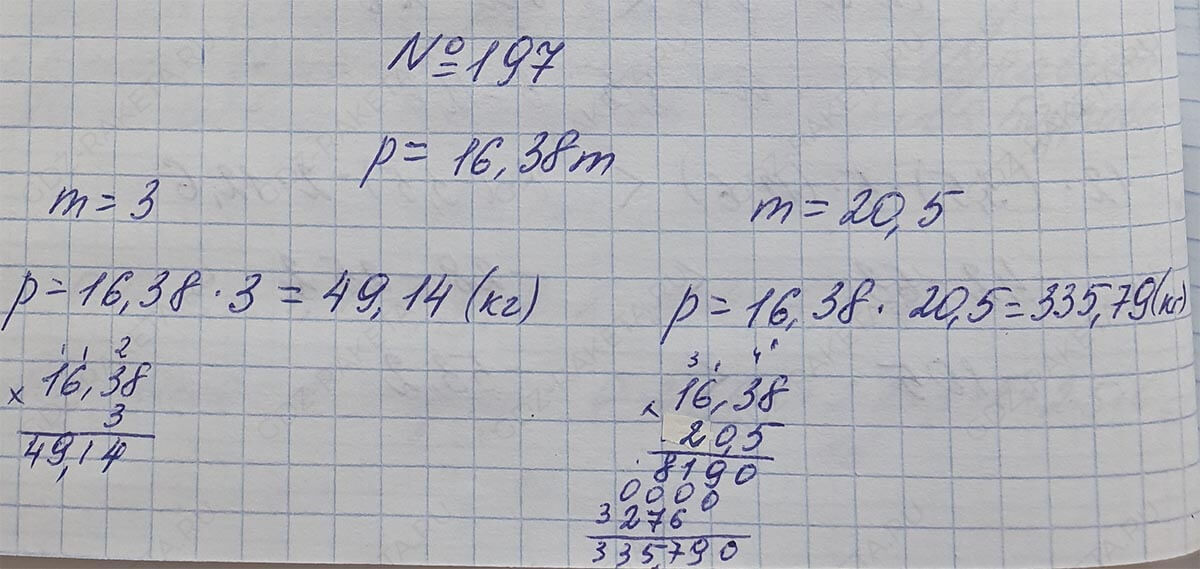 №197
p = 16,38m
m = 3
p = 16,38 · 3 = 49,14 (кг)
1 1 2
16,38
× 3
49,14
m = 20,5
p = 16,38 · 20,5 = 335,79 (кг)
3 1 4
16,38
× 20,5
8190
0000
3276
335,790